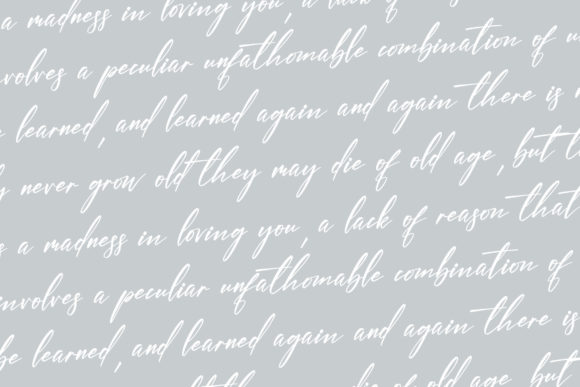 a madness in loving you, a lack of
nvolves a peculiar unfathomable combination of u
learned, and learned again and again there is n
never grow old they may die of old age, but t
s a madness in loving you, a lack of reason that
involves a peculiar unfathomable combination of
be learned, and learned again and again there is
old they may die of old age, but